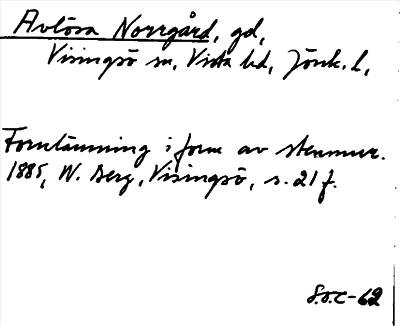 Avlösa Norrgård, gd,
Visingsö sn, Vista hd, Jönk. l,
Fornlämning i form av stenmur.
1885, W. Berg, Visingsö, s. 21 f.
S.O.C-62